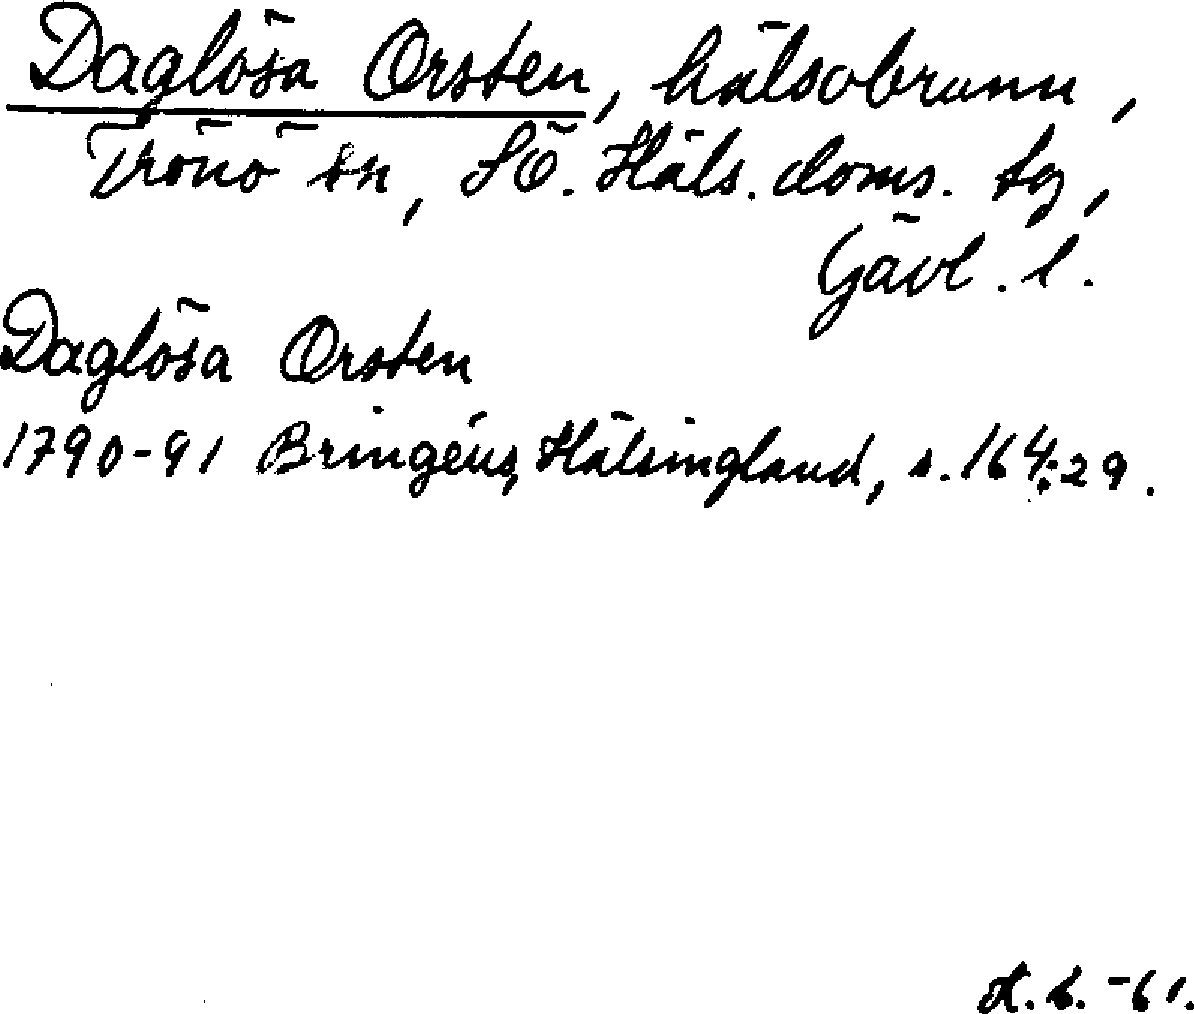 Daglösa Orsten, hälsobrunn,
Trönö sn, SÖ. Häls. doms. tg,
Gävl. l.
Daglösa Orsten
1790-91 Bringéus, Hälsingland, s. 164:29.
-61.